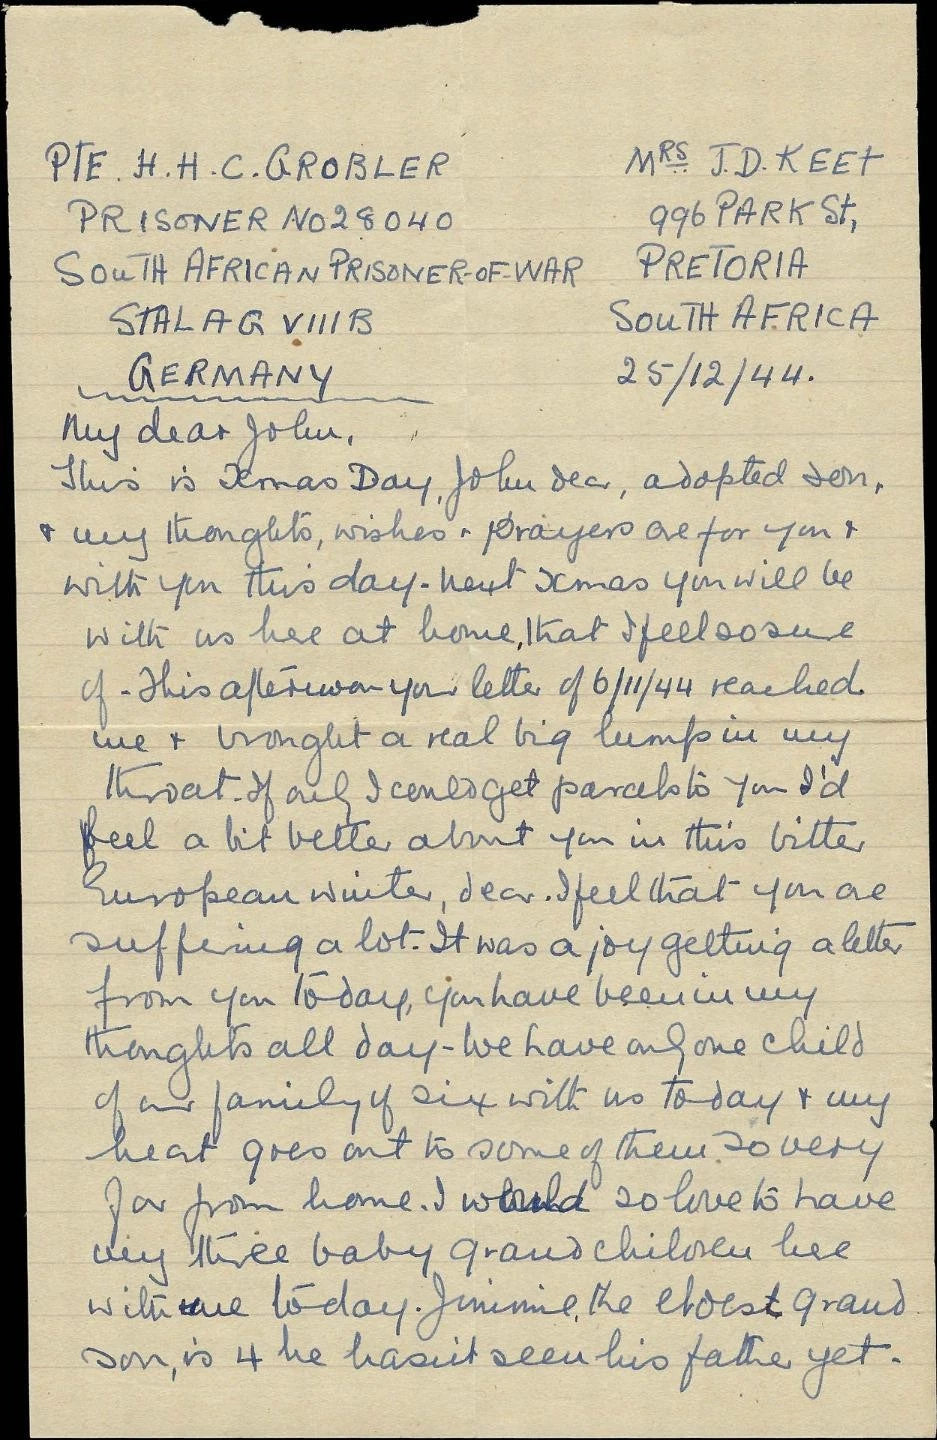 PTE. H.H.C. GROBLER
PRISONER NO 28040
SOUTH AFRICAN PRISONER-OF-WAR
STALAG VIIIB
GERMANY
MRS J.D. KEET
996 PARK St,
PRETORIA
SOUTH AFRICA
25/12/44.
My dear John,
This is Xmas Day, John dear, adopted son,
+ my thoughts, wishes + prayers are for you +
with you this day - next Xmas you will be
with us here at home, that I feel so sure
of - This afternoon your letter of 6/11/44 reached
me + brought a real big lump in my
throat. If only I could get parcels to you I'd
feel a bit better about you in this bitter
European winter, dear. I feel that you are
suffering a lot. It was a joy getting a letter
from you today, you have been in my
thoughts all day - We have only one child
of our family of six with us today + my
heart goes out to some of them so very
far from home. I would so love to have
my three baby grandchildren here
with me today. Jimmie, the eldest grand
son, is 4 he hasn't seen his father yet.